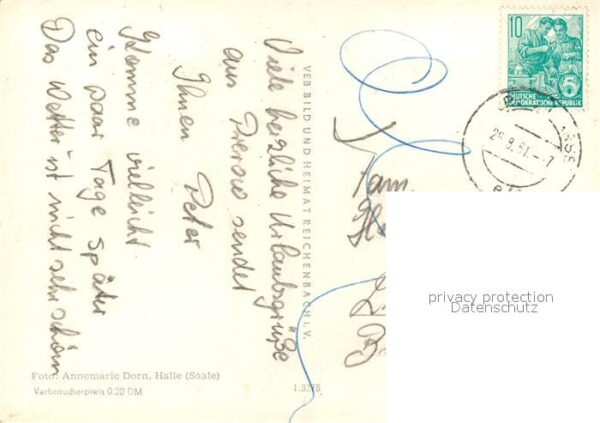 Viele herzliche Urlaubsgrüße
aus Prerow sendet
Ihnen Peter
Komme vielleicht
ein paar Tage später
Das Wetter ist nicht sehr schön
VEB BILD UND HEIMAT REICHENBACH I. V.
10
DEUTSCHE
DEMOKRATISCHE REPUBLIK
29.8.61.-7
Fam.
privacy protection
Datenschutz
Foto: Annemarie Dorn, Halle (Saale)
Verbraucherpreis 0.20 DM